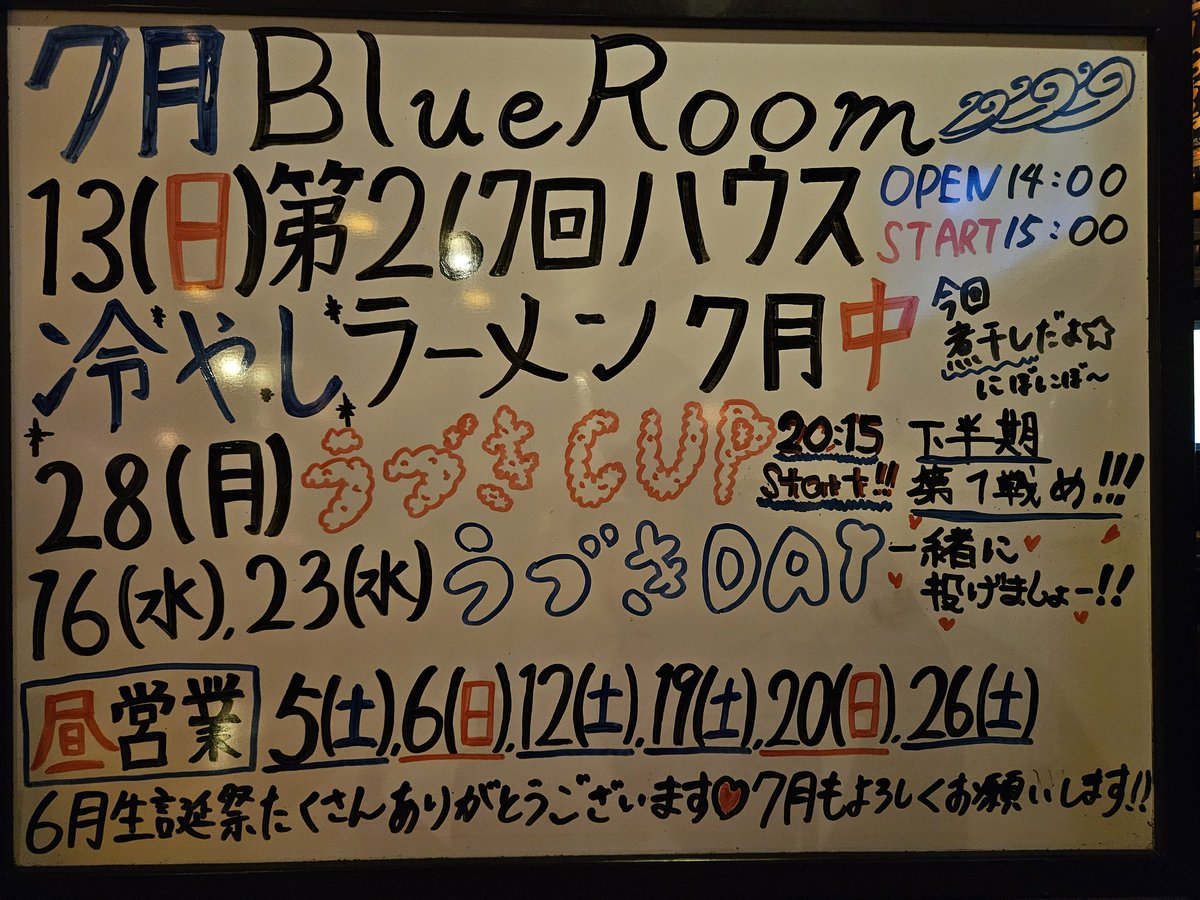 7月 BlueRoom
13(日)第267回ハウス OPEN 14:00
START 15:00
冷やしラーメン 7月中 今回
煮干しだよ☆
にぼにぼ〜
28(月) うづきCUP 20:15 Start!!! 下半期
第1戦め!!!
16(水), 23(水) うづきDAY 一緒に
投げましょー!!
昼営業 5(土), 6(日), 12(土), 19(土), 20(日), 26(土)
6月生誕祭たくさんありがとうございます♡7月もよろしくお願いします!!